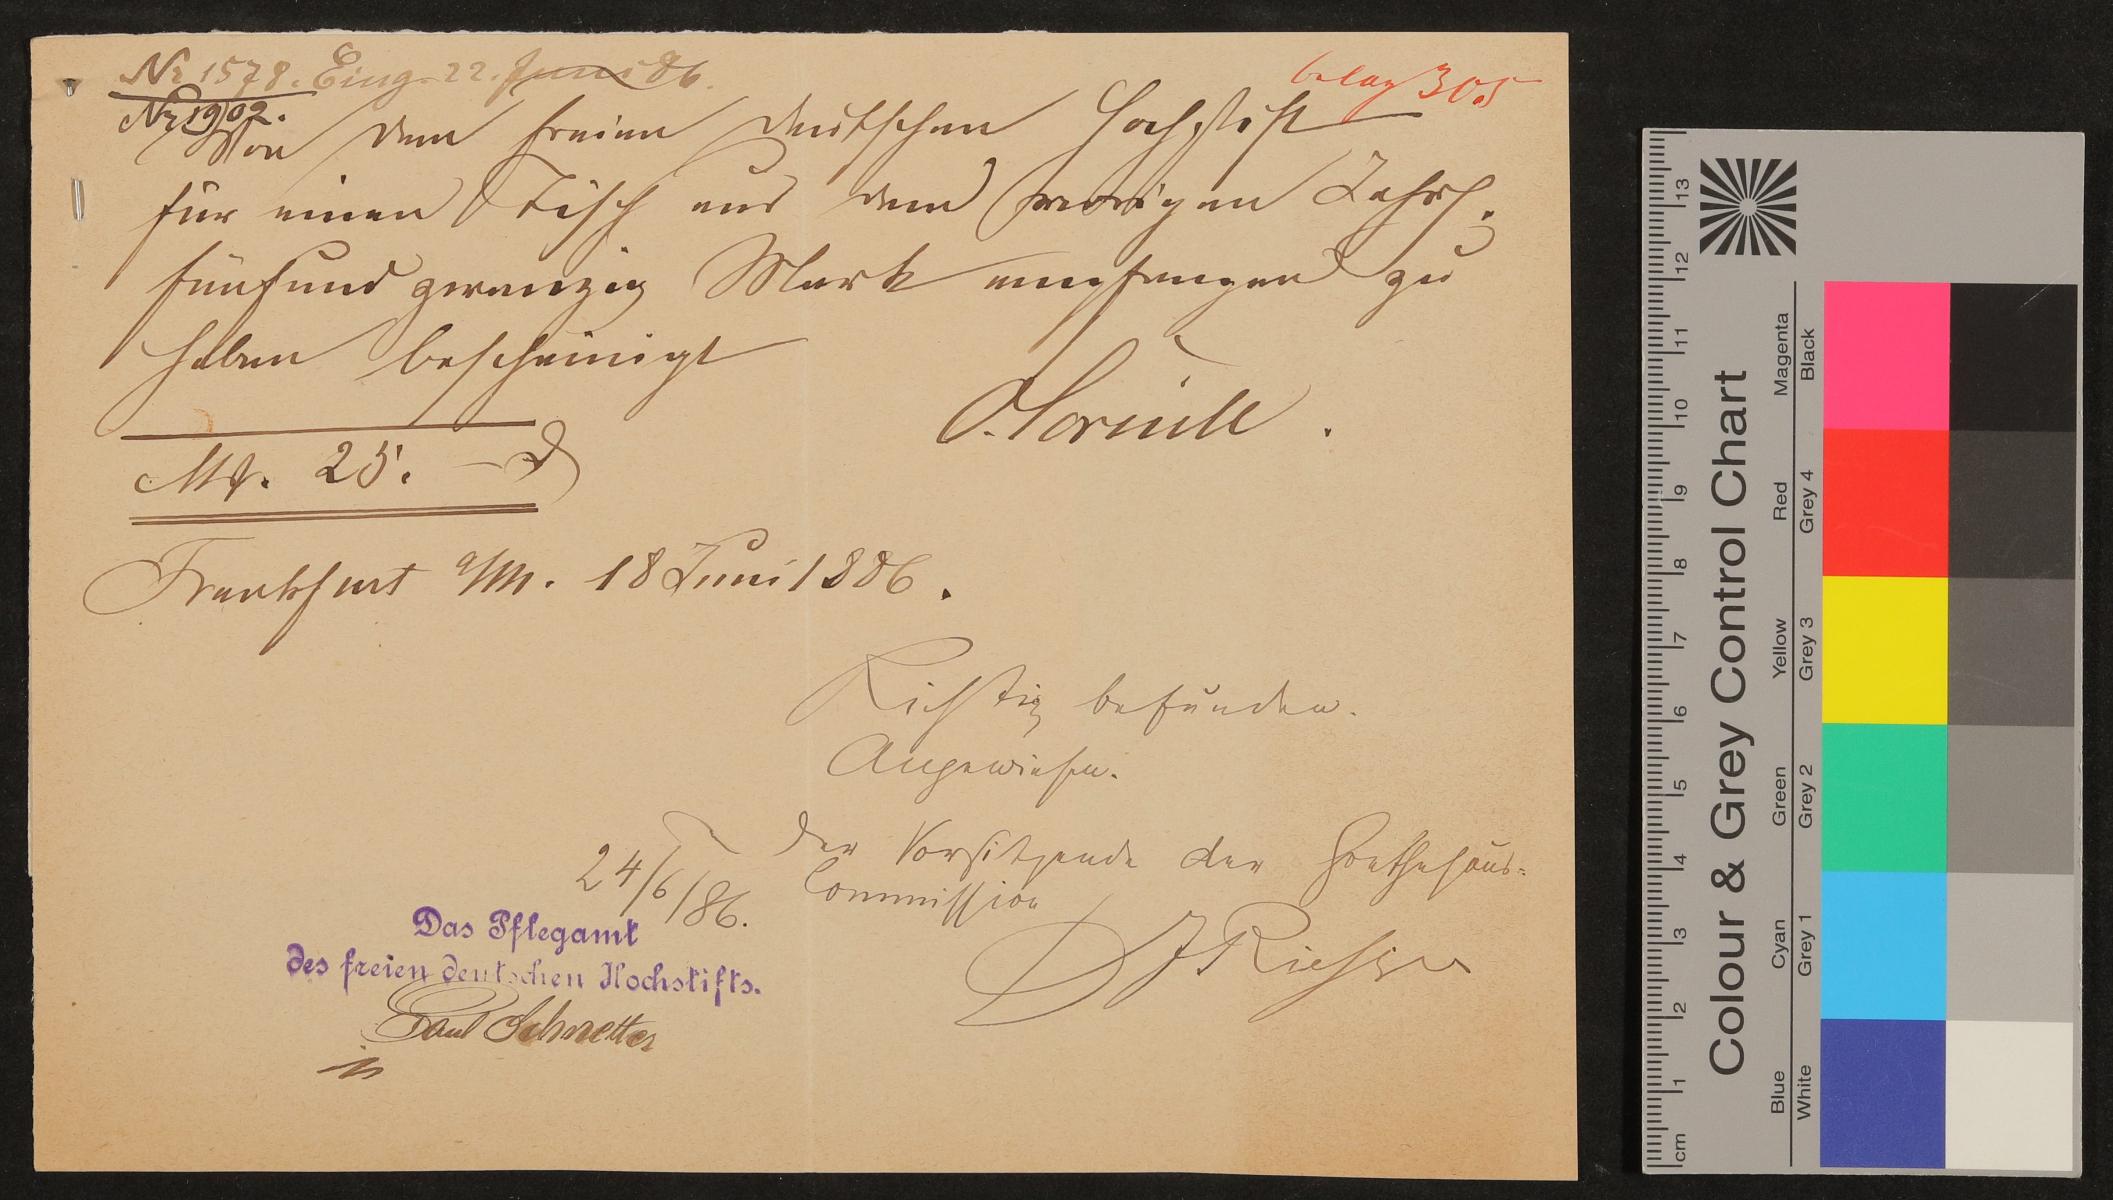 No 1578. Eing. 22. Juni 86.
belag 305
No 1902.
Von dem freien deutschen Hochstift
für einen Tisch aus dem vorigen Jahrh.
fünfundzwanzig Mark empfangen zu
haben bescheinigt
O. Cornill.
Mk. 25. —
Frankfurt a/M. 18 Juni 1886.
Richtig befunden.
Angewiesen.
Der Vorsitzende der Goethehaus-
Commission
24/6/86.
Das Pflegamt
des freien deutschen Hochstifts.
Paul Schnetter
cm 1 2 3 4 5 6 7 8 9 10 11 12 13
Colour & Grey Control Chart
Blue Cyan Green Yellow Red Magenta
White Grey 1 Grey 2 Grey 3 Grey 4 Black